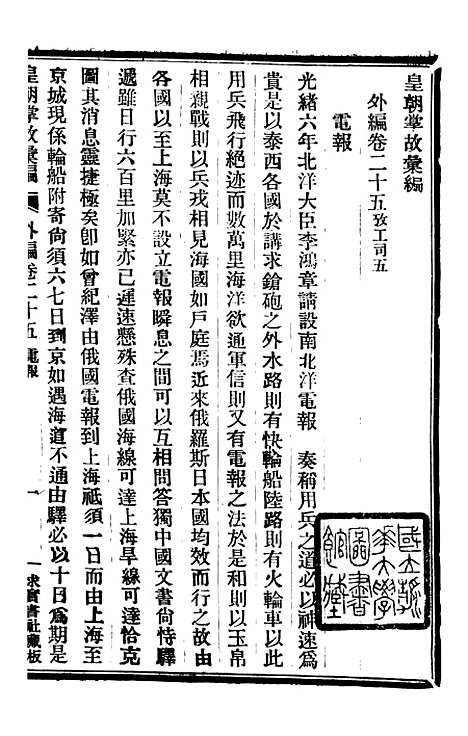 皇朝掌故彙編
外編卷二十五攷工司五
電報
光緒六年北洋大臣李鴻章請設南北洋電報　奏稱用兵之道必以神速爲
貴是以泰西各國於講求鎗砲之外水路則有快輪船陸路則有火輪車以此
用兵飛行絕迹而數萬里海洋欲通軍信則又有電報之法於是以玉帛
相親戰則以兵戎相見海國如戶庭焉近來俄羅斯日本國均效而行之故由
各國以至上海莫不設立電報瞬息之間可以互相問答獨中國文書尙恃驛
遞雖日行六百里加緊亦已遲速懸殊查俄國海線可達上海旱線可達恰克
圖其消息靈捷極矣卽如曾紀澤由俄國電報到上海祇須一日而由上海至
京城現係輪船附寄尙須六七日到京如遇海道不通由驛必以十日爲期是
皇朝掌故彙編 外編卷二十五 電報 一 求實書社藏板
國立 大學圖書館藏